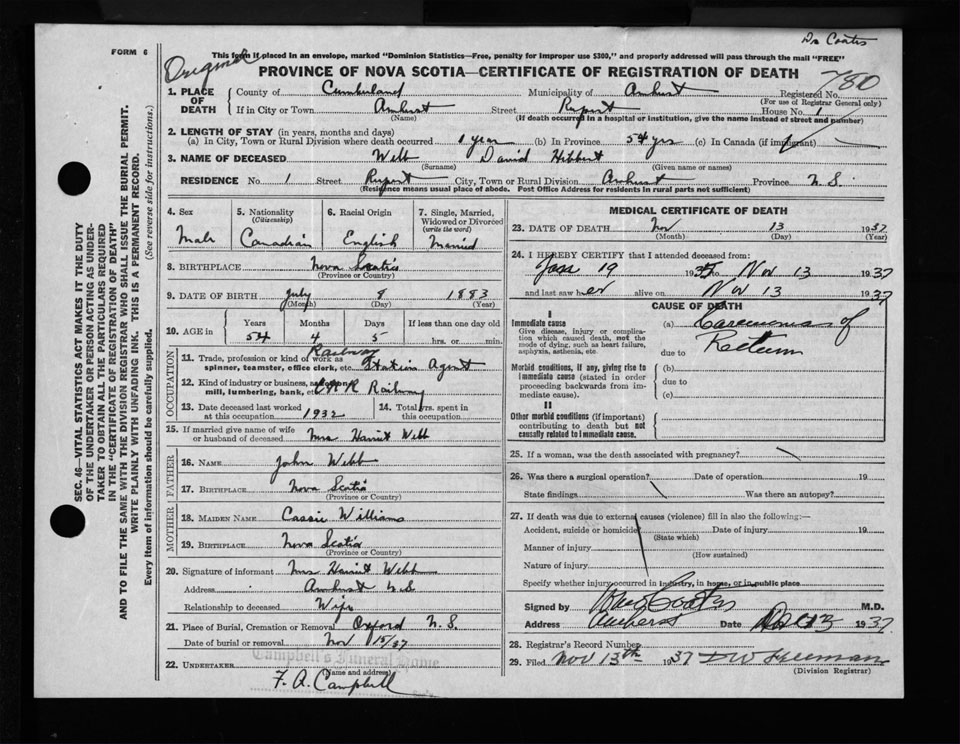 Dr Coates
FORM 6
This form if placed in an envelope, marked "Dominion Statistics—Free, penalty for improper use $300," and properly addressed will pass through the mail "FREE"
Original
PROVINCE OF NOVA SCOTIA—CERTIFICATE OF REGISTRATION OF DEATH
780
1. PLACE OF DEATH County of Cumberland Municipality of Amherst Registered No.
(For use of Registrar General only)
If in City or Town Amherst Street Rupert House No. 1
(Name) (If death occurred in a hospital or institution, give the name instead of street and number)
2. LENGTH OF STAY (in years, months and days)
(a) In City, Town or Rural Division where death occurred 1 year (b) In Province 54 yrs (c) In Canada (if immigrant)
3. NAME OF DECEASED Webb David Hibbert
(Surname) (Given name or names)
RESIDENCE No. 1 Street Rupert City, Town or Rural Division Amherst Province N.S.
(Residence means usual place of abode. Post Office Address for residents in rural parts not sufficient)
SEC. 46—VITAL STATISTICS ACT MAKES IT THE DUTY
OF THE UNDERTAKER OR PERSON ACTING AS UNDER-
TAKER TO OBTAIN ALL THE PARTICULARS REQUIRED
IN THE "CERTIFICATE OF REGISTRATION OF DEATH"
AND TO FILE THE SAME WITH THE DIVISION REGISTRAR WHO SHALL ISSUE THE BURIAL PERMIT.
WRITE PLAINLY WITH UNFADING INK. THIS IS A PERMANENT RECORD.
Every item of information should be carefully supplied. (See reverse side for instructions.)
4. Sex 5. Nationality (Citizenship) 6. Racial Origin 7. Single, Married, Widowed or Divorced (write the word)
Male Canadian English Married
8. BIRTHPLACE Nova Scotia
(Province or Country)
9. DATE OF BIRTH July 8 1883
(Month) (Day) (Year)
10. AGE in Years Months Days If less than one day old
54 4 5 hrs. or min.
OCCUPATION
11. Trade, profession or kind of work as spinner, teamster, office clerk, etc. Railway Station Agent
12. Kind of industry or business, as cotton mill, lumbering, bank, etc. Railway
13. Date deceased last worked at this occupation 1932 14. Total yrs. spent in this occupation
15. If married give name of wife or husband of deceased Mrs Harriet Webb
FATHER
16. NAME John Webb
17. BIRTHPLACE Nova Scotia
(Province or Country)
MOTHER
18. MAIDEN NAME Cassie Williams
19. BIRTHPLACE Nova Scotia
(Province or Country)
20. Signature of informant Mrs Harriet Webb
Address Amherst N.S.
Relationship to deceased Wife
21. Place of Burial, Cremation or Removal Oxford N.S.
Date of burial or removal Nov 15/37
Campbell's Funeral Home
22. UNDERTAKER
(Name and address)
F. A. Campbell
MEDICAL CERTIFICATE OF DEATH
23. DATE OF DEATH Nov 13 1937
(Month) (Day) (Year)
24. I HEREBY CERTIFY that I attended deceased from:
19 to Nov 13 1937
and last saw h alive on Nov 13 1937
CAUSE OF DEATH
I
Immediate cause
Give disease, injury or complication which caused death, not the mode of dying, such as heart failure, asphyxia, asthenia, etc.
(a) Carcinoma of
due to Rectum
Morbid conditions, if any, giving rise to immediate cause (stated in order proceeding backwards from immediate cause).
(b)
due to
(c)
II
Other morbid conditions (if important) contributing to death but not causally related to immediate cause.
25. If a woman, was the death associated with pregnancy?
26. Was there a surgical operation? Date of operation 19
State findings Was there an autopsy?
27. If death was due to external causes (violence) fill in also the following:—
Accident, suicide or homicide Date of injury 19
(State which)
Manner of injury
(How sustained)
Nature of injury
Specify whether injury occurred in industry, in home, or in public place
Signed by Coates M.D.
Address Amherst Date 13 1937
28. Registrar's Record Number
29. Filed Nov 13th 1937 Freeman
(Division Registrar)